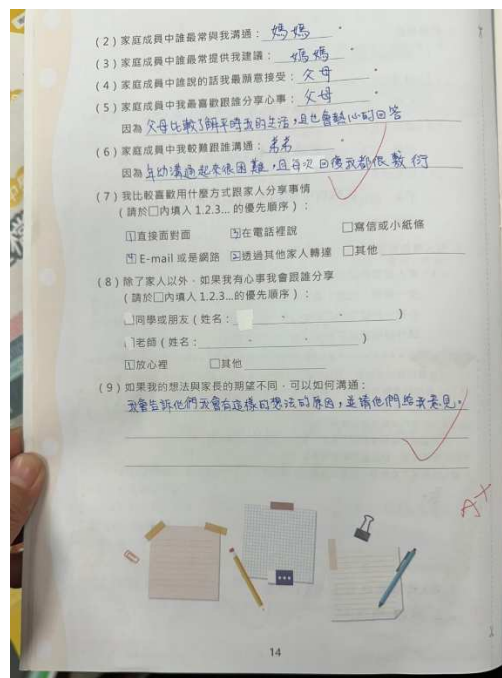 (2) 家庭成員中誰最常與我溝通：媽媽。
(3) 家庭成員中誰最常提供我建議：媽媽。
(4) 家庭成員中誰說的話我最願意接受：父母。
(5) 家庭成員中我最喜歡跟誰分享心事：父母。
因為父母比較了解平時我的生活，且也會熱心的回答
(6) 家庭成員中我較難跟誰溝通：弟弟。
因為年幼溝通起來很困難，且每次回復我都很敷衍
(7) 我比較喜歡用什麼方式跟家人分享事情
(請於□內填入 1.2.3... 的優先順序)：
1直接面對面 3在電話裡說 □寫信或小紙條
4 E-mail 或是網路 2透過其他家人轉達 □其他
(8) 除了家人以外，如果我有心事我會跟誰分享
(請於□內填入 1.2.3...的優先順序)：
同學或朋友 (姓名：、、)
老師 (姓名：、、)
1放心裡 □其他
(9) 如果我的想法與家長的期望不同，可以如何溝通：
我會告訴他們我會有這樣的想法的原因，並請他們給我意見。
A+
14